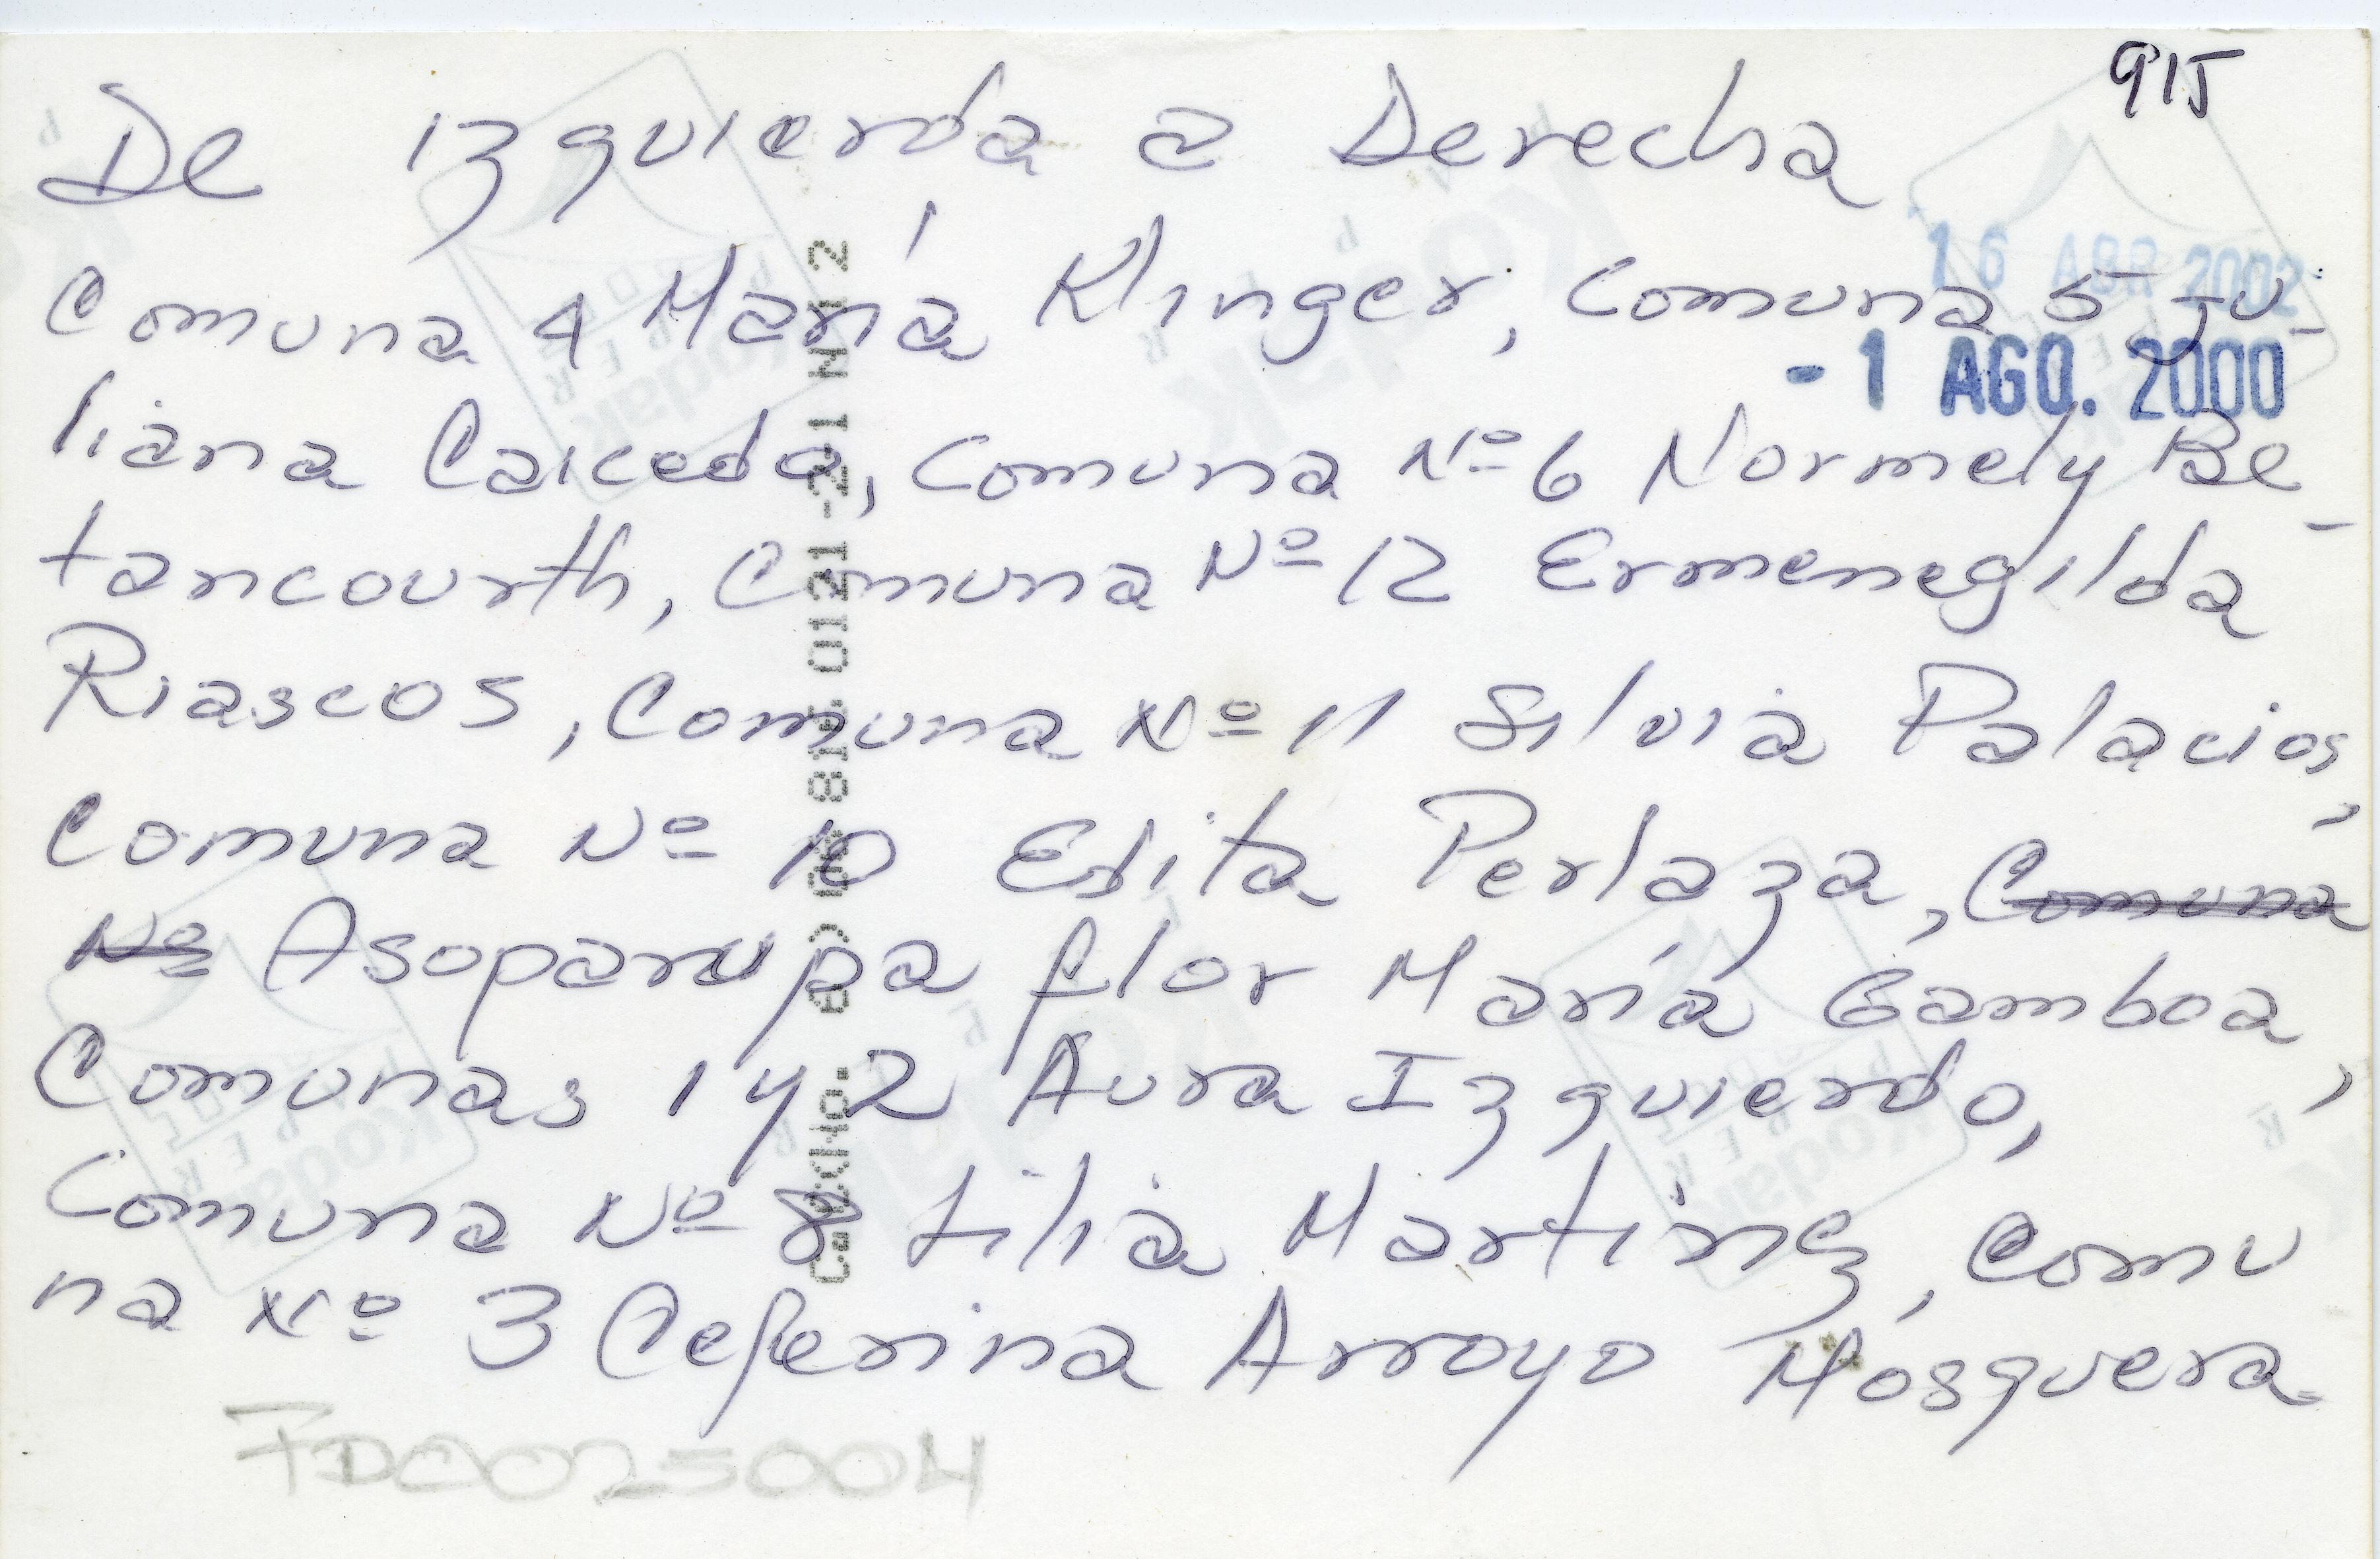 915
De izquierda a Derecha
16 ABR 2002
Comuna 4 María Klinger, Comuna 5 Ju-
- 1 AGO. 2000
liana Caicedo, Comuna Nº 6 Normely Be-
tancourth, Comuna Nº 12 Ermenegilda
Riascos, Comuna Nº 11 Silvia Palacios,
Comuna Nº 10 Edita Perlaza, Comuna
Nº Asoparupa flor María Gamboa,
Comunas 1 y 2 Aura Izquierdo,
Comuna Nº 8 Lilia Martínez, Comu
na Nº 3 Ceferina Arroyo Mosquera